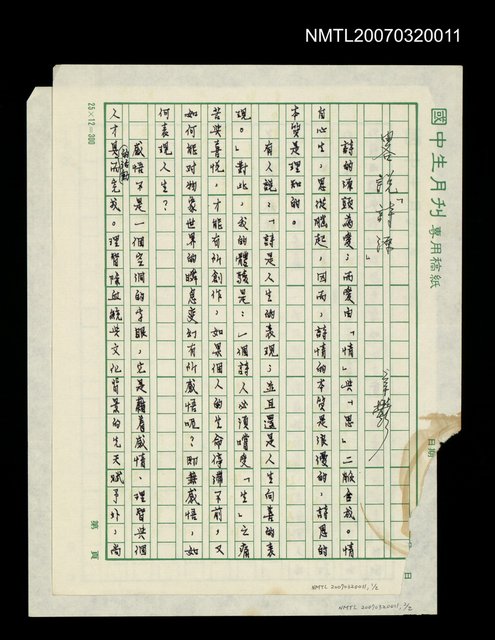 NMTL20070320011
國中生月刊 專用稿紙
略說「詩源」
辛鬱
詩的源頭為愛；而愛由「情」與「思」二脈合成。情
自心生，思從腦起，因而，詩情的本質是浪漫的，詩思的
本質是理知的。
有人說：「詩是人生的表現；並且還是人生向善的表
現。」對此，我的體驗是：一個詩人必須嚐受「生」之痛
苦與喜悅，才能有所創作，如果個人的生命停滯不前，又
如何能對物象世界的瞬息變幻有所感悟呢？對無感悟，如
何表現人生？
感悟不是一個空洞的字眼，它是藉着感情、理智與個
人才具的活動而完成。理智除血統與文化背景的先天賦予外，尚
25×12=300
第 頁
日期
日
NMTL 20070320011, 1/2
NMTL 20070320011, 2/2